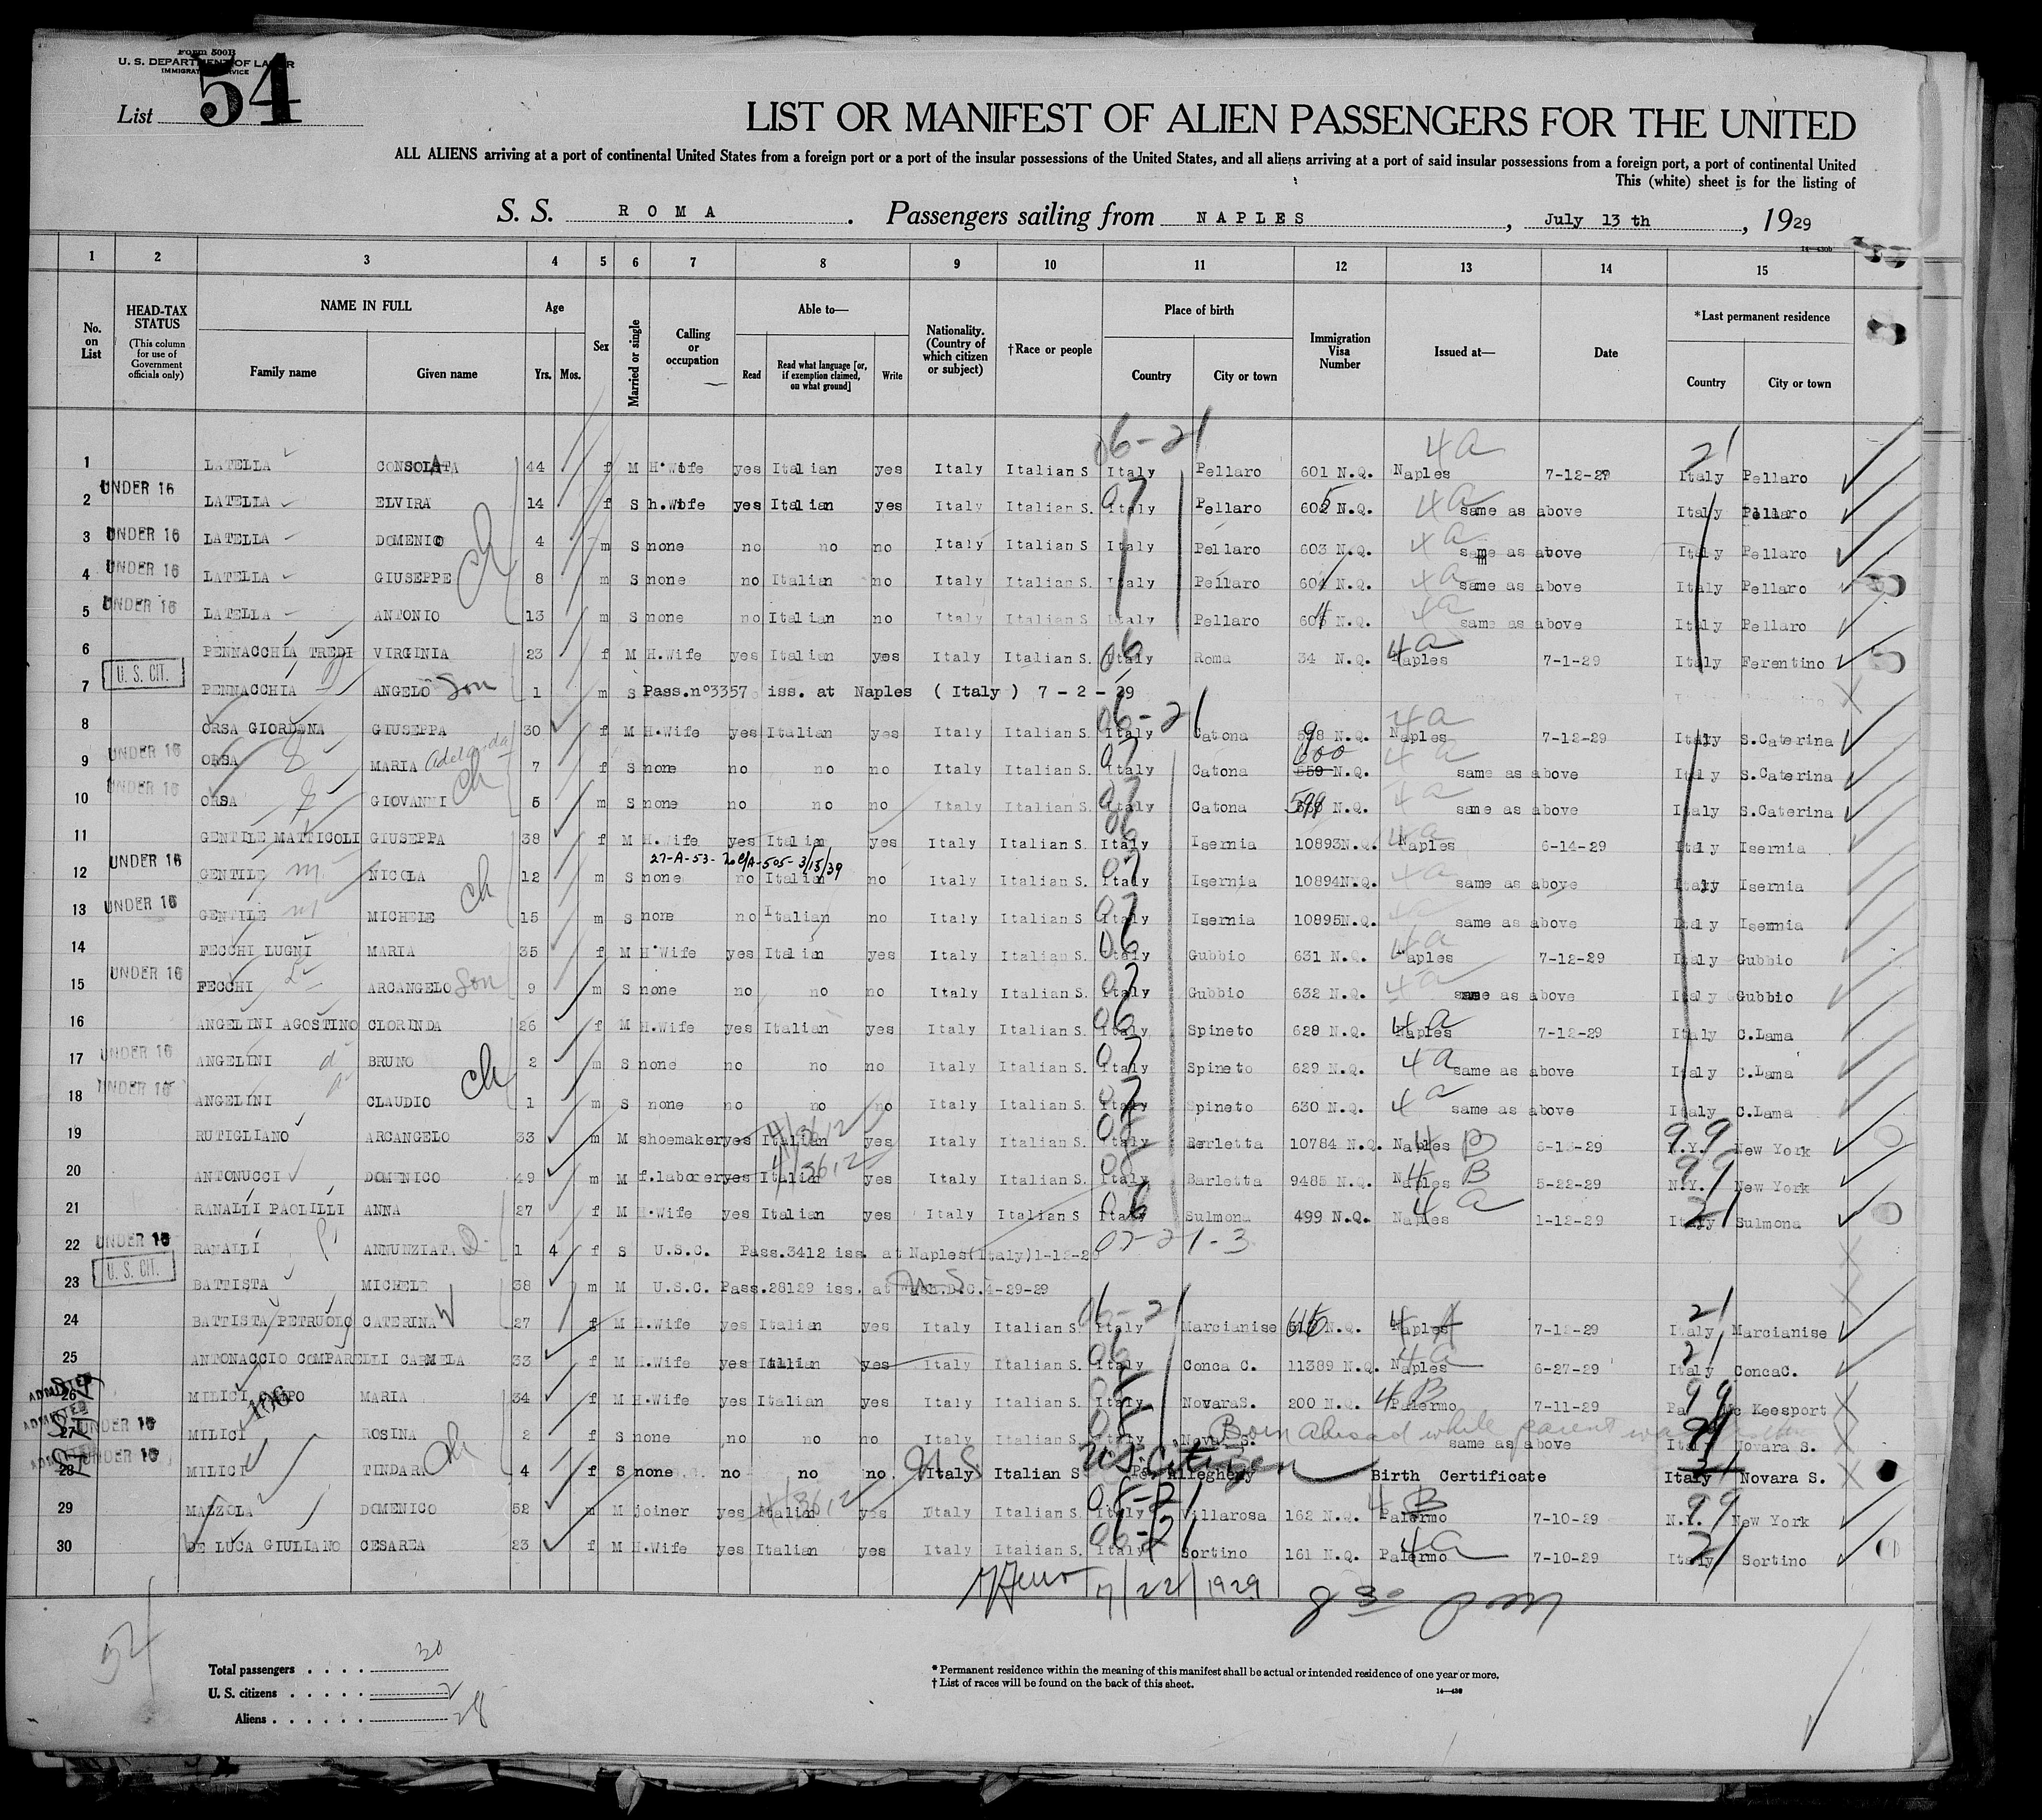 Form 500B
U. S. DEPARTMENT OF LABOR
IMMIGRATION SERVICE
List 54
LIST OR MANIFEST OF ALIEN PASSENGERS FOR THE UNITED
ALL ALIENS arriving at a port of continental United States from a foreign port or a port of the insular possessions of the United States, and all aliens arriving at a port of said insular possessions from a foreign port, a port of continental United
This (white) sheet is for the listing of
S. S. ROMA. Passengers sailing from NAPLES, July 13 th, 1929
14—430b
1 2 3 4 5 6 7 8 9 10 11 12 13 14 15
No. on List HEAD-TAX STATUS (This column for use of Government officials only) NAME IN FULL Family name Given name Age Yrs. Mos. Sex Married or single Calling or occupation Able to— Read Read what language [or, if exemption claimed, on what ground] Write Nationality. (Country of which citizen or subject) †Race or people Place of birth Country City or town Immigration Visa Number Issued at— Date *Last permanent residence Country City or town
06-21 4a 21
1 LATELLA CONSOLATA 44 f M H.Wife yes Italian yes Italy Italian S Italy Pellaro 601 N.Q. Naples 7-12-29 Italy Pellaro
2 UNDER 16 LATELLA ELVIRA 14 f S h.Wife yes Italian yes Italy Italian S. Italy Pellaro 605 N.Q. 4a same as above Italy Pellaro
3 UNDER 16 LATELLA DOMENICO 4 m S none no no no Italy Italian S Italy Pellaro 603 N.Q. 4a same as above Italy Pellaro
4 UNDER 16 LATELLA GIUSEPPE ch 8 m S none no Italian no Italy Italian S. Italy Pellaro 604 N.Q. 4a same as above Italy Pellaro
5 UNDER 16 LATELLA ANTONIO 13 m S none no Italian no Italy Italian S Italy Pellaro N.Q. 4a same as above Italy Pellaro
6 PENNACCHIA TREDI VIRGINIA 23 f M H.Wife yes Italian yes Italy Italian S. 06 Italy Roma 34 N.Q. 4a Naples 7-1-29 Italy Ferentino
7 U. S. CIT. PENNACCHIA ANGELO Son 1 m S Pass.n°3357 iss. at Naples (Italy) 7-2-29
8 ORSA GIORDANA GIUSEPPA 30 f M H.Wife yes Italian yes Italy Italian S. 06-21 Italy Catona N.Q. 4a Naples 7-12-29 Italy S.Caterina
9 UNDER 16 ORSA MARIA Adelaida 7 f S none no no no Italy Italian S. 07 Italy Catona 600 559 N.Q. 4a same as above Italy S.Caterina
10 UNDER 16 ORSA GIOVANNI ch 5 m S none no no no Italy Italian S. 07 Italy Catona 599 N.Q. 4a same as above Italy S.Caterina
11 GENTILE MATTICOLI GIUSEPPA 38 f M H.Wife yes Italian yes Italy Italian S. 06 Italy Isernia 10893N.Q. 4a Naples 6-14-29 Italy Isernia
12 UNDER 16 GENTILE m NICOLA ch 12 m S none no Italian no Italy Italian S. 07 Italy Isernia 10894N.Q. 4a same as above Italy Isernia
13 UNDER 16 GENTILE m MICHELE 15 m S none no Italian no Italy Italian S. 07 Italy Isernia 10895N.Q. 4a same as above Italy Isernia
14 FECCHI LUGNI MARIA 35 f M H.Wife yes Italian yes Italy Italian S. 06 Italy Gubbio 631 N.Q. 4a Naples 7-12-29 Italy Gubbio
15 UNDER 16 FECCHI L ARCANGELO Son 9 m S none no no no Italy Italian S. 07 Italy Gubbio 632 N.Q. 4a same as above Italy Gubbio
16 ANGELINI AGOSTINO CLORINDA 26 f M H.Wife yes Italian yes Italy Italian S. 06 Italy Spineto 628 N.Q. 4a Naples 7-12-29 Italy C.Lama
17 UNDER 16 ANGELINI a BRUNO ch 2 m S none no no no Italy Italian S. 07 Italy Spineto 629 N.Q. 4a same as above Italy C.Lama
18 UNDER 16 ANGELINI a CLAUDIO 1 m S none no no no Italy Italian S. 07 Italy Spineto 630 N.Q. 4a same as above Italy C.Lama
19 RUTIGLIANO ARCANGELO 33 m M shoemaker yes Italian yes Italy Italian S. 08 Italy Barletta 10784 N.Q. 4B Naples 6-13-29 99 N.Y. New York
20 ANTONUCCI DOMENICO 49 m M f.laborer yes Italian yes Italy Italian S. 08 Italy Barletta 9485 N.Q. 4B Naples 5-22-29 99 N.Y. New York
21 RANALLI PAOLILLI ANNA 27 f M H.Wife yes Italian yes Italy Italian S 06 Italy Sulmona 499 N.Q. 4a Naples 1-12-29 21 Italy Sulmona
22 UNDER 16 U. S. CIT. RANALLI P ANNUNZIATA D 1 4 f S U.S.C. Pass.3412 iss. at Naples(Italy)1-12-29 07-21-3
23 BATTISTA MICHELE 38 m M U.S.C. Pass.28129 iss. at Wash.D.C.4-29-29
24 BATTISTA PETRUOLO CATERINA W 27 f M H.Wife yes Italian yes Italy Italian S. 06-21 Italy Marcianise 616 N.Q. 4A Naples 7-12-29 21 Italy Marcianise
25 ANTONACCIO COMPARELLI CARMELA 33 f M H.Wife yes Italian yes Italy Italian S. 06 Italy Conca C. 11389 N.Q. 4a Naples 6-27-29 21 Italy ConcaC.
ADMITTED 26 MILICI CAMPO MARIA 34 f M H.Wife yes Italian yes Italy Italian S. 08 Italy NovaraS. 200 N.Q. 4B Palermo 7-11-29 99 Pa Mc Keesport
ADMITTED 27 UNDER 16 MILICI ROSINA 2 f S none no no no Italy Italian S. 08 Italy Novara S. Born abroad while parent was same as above Italy Novara S.
ADMITTED 28 UNDER 16 MILICI TINDARA ch 4 f S none no no no Italy Italian S U.S. Citizen Pa Allegheny Birth Certificate Italy Novara S.
29 MAZZOLA DOMENICO 52 m M joiner yes Italian yes Italy Italian S. 08-21 Italy Villarosa 162 N.Q. 4B Palermo 7-10-29 99 N.Y. New York
30 DE LUCA GIULIANO CESAREA 23 f M H.Wife yes Italian yes Italy Italian S. 06-21 Italy Sortino 161 N.Q. 4a Palermo 7-10-29 21 Italy Sortino
7/22/1929 8 30 pm
54
Total passengers . . . . 30
U. S. citizens . . . . . 2
Aliens . . . . . . 28
* Permanent residence within the meaning of this manifest shall be actual or intended residence of one year or more.
† List of races will be found on the back of this sheet.
14—430